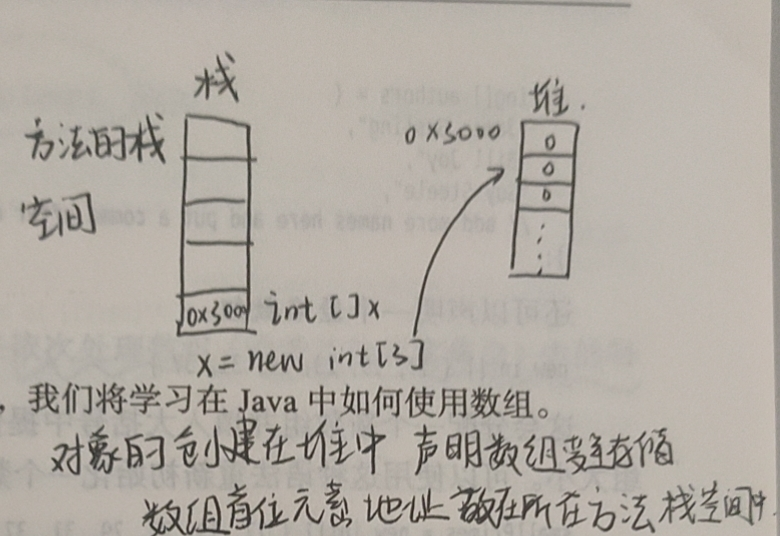 栈
堆.
方法的栈
空间
0x3000
0
0
0
0x300
int []x
x = new int[3]
,我们将学习在 Java 中如何使用数组。
对象的创建在堆中 声明数组变量存储
数组首位元素地址 放在所在方法栈空间中